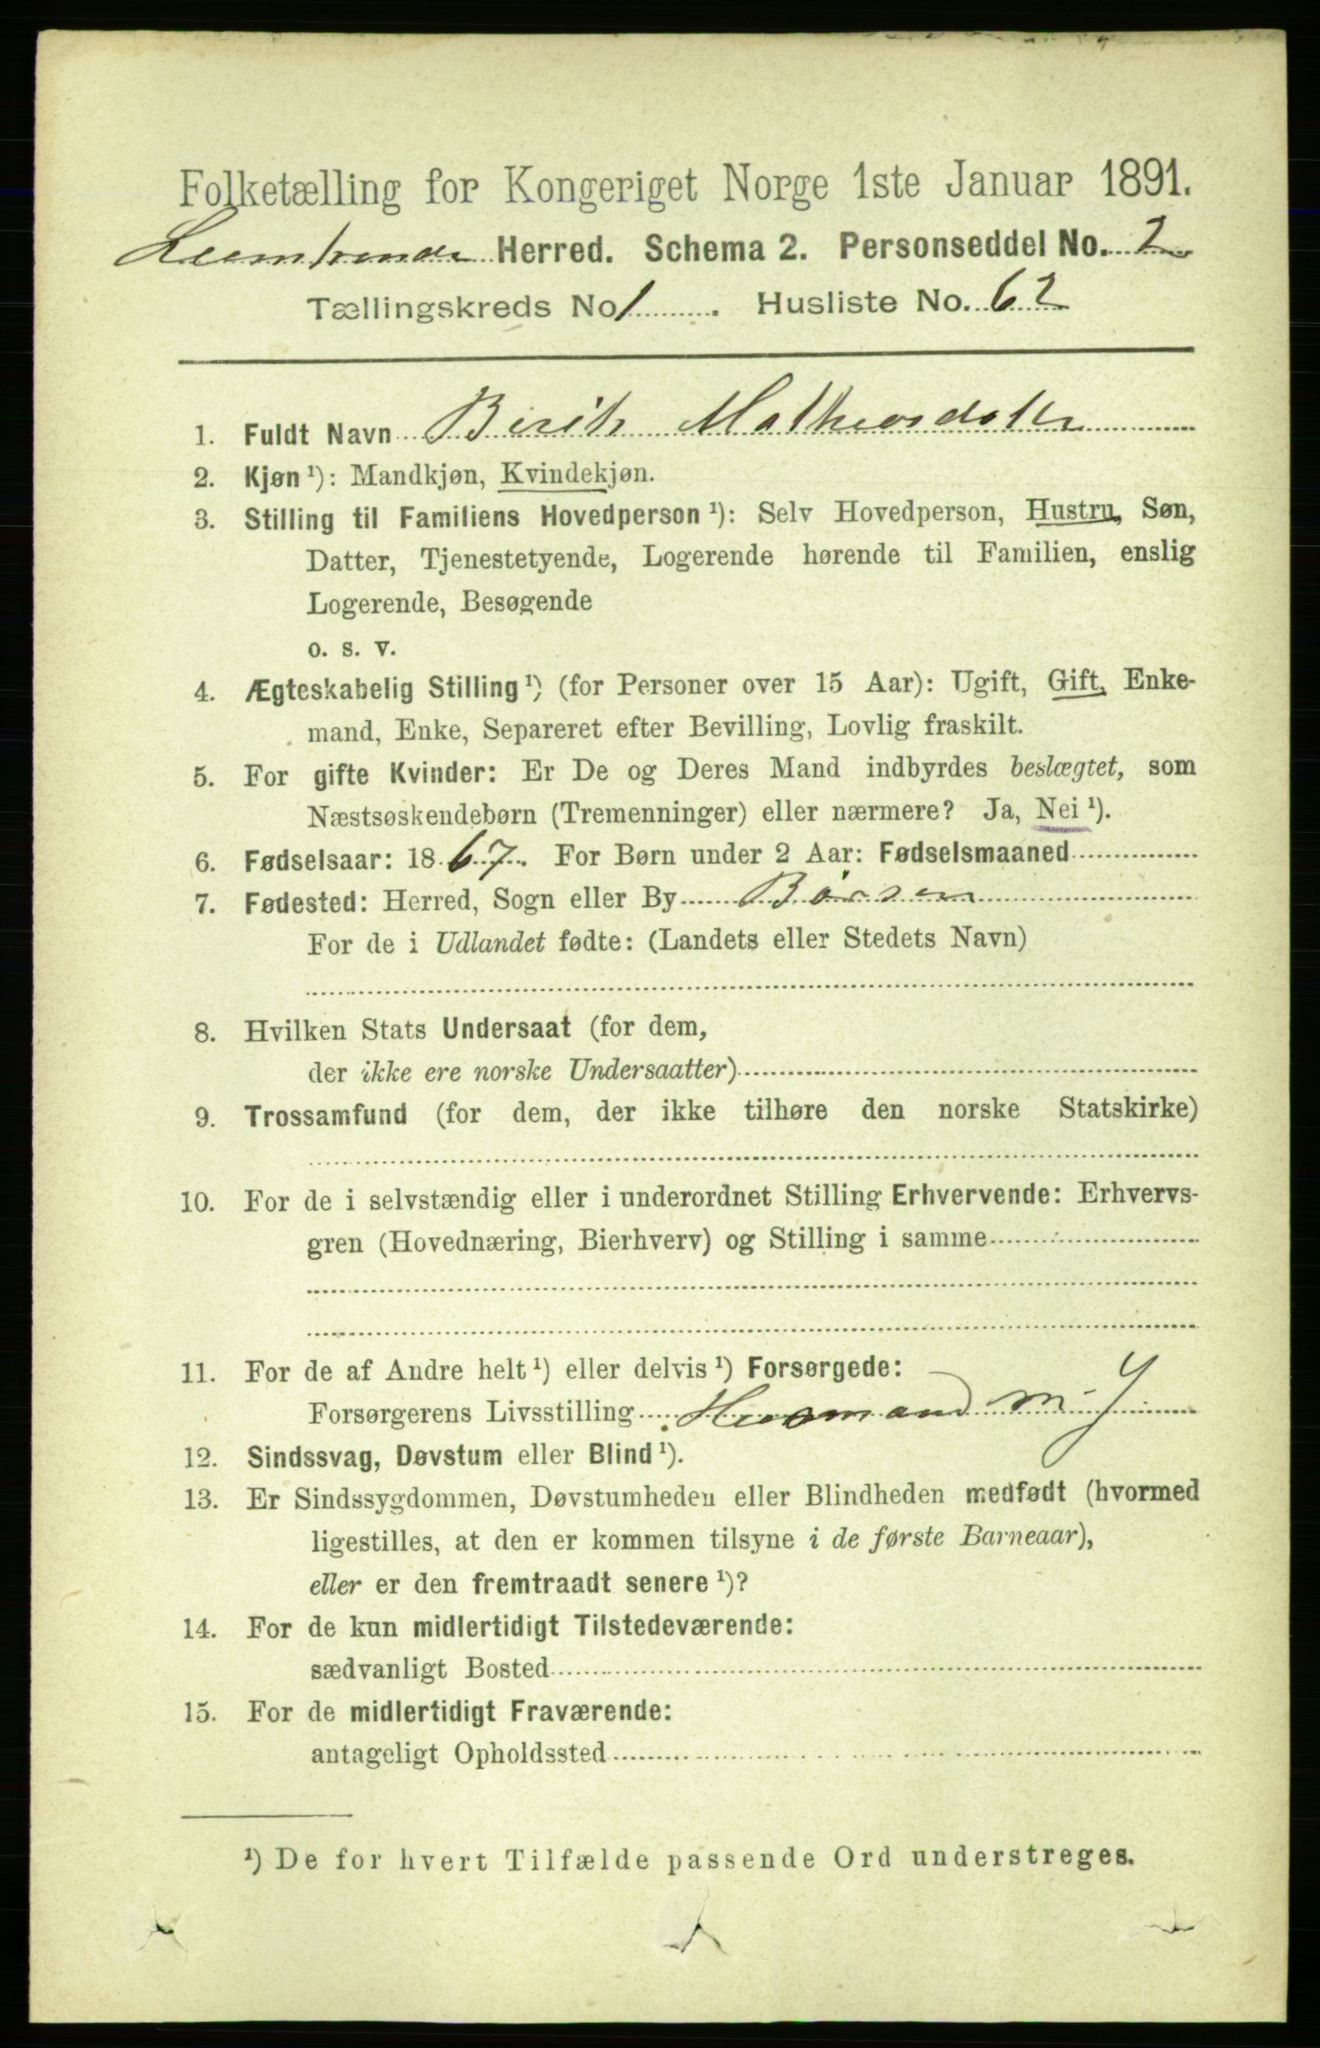 Folketælling for Kongeriget Norge 1ste Januar 1891.
Leenstranden Herred. Schema 2. Personseddel No. 2
Tællingskreds No 1. Husliste No. 62
1. Fuldt Navn Berith Matheasdatter
2. Kjøn ¹): Mandkjøn, Kvindekjøn.
3. Stilling til Familiens Hovedperson ¹): Selv Hovedperson, Hustru, Søn,
Datter, Tjenestetyende, Logerende hørende til Familien, enslig
Logerende, Besøgende
o. s. v.
4. Ægteskabelig Stilling ¹) (for Personer over 15 Aar): Ugift, Gift, Enke-
mand, Enke, Separeret efter Bevilling, Lovlig fraskilt.
5. For gifte Kvinder: Er De og Deres Mand indbyrdes beslægtet, som
Næstsøskendebørn (Tremenninger) eller nærmere? Ja, Nei ¹).
6. Fødselsaar: 1867. For Børn under 2 Aar: Fødselsmaaned
7. Fødested: Herred, Sogn eller By Børsen
For de i Udlandet fødte: (Landets eller Stedets Navn)
8. Hvilken Stats Undersaat (for dem,
der ikke ere norske Undersaatter)
9. Trossamfund (for dem, der ikke tilhøre den norske Statskirke)
10. For de i selvstændig eller i underordnet Stilling Erhvervende: Erhvervs-
gren (Hovednæring, Bierhverv) og Stilling i samme
11. For de af Andre helt ¹) eller delvis ¹) Forsørgede:
Forsørgerens Livsstilling Husmand m. J
12. Sindssvag, Døvstum eller Blind ¹).
13. Er Sindssygdommen, Døvstumheden eller Blindheden medfødt (hvormed
ligestilles, at den er kommen tilsyne i de første Barneaar),
eller er den fremtraadt senere ¹)?
14. For de kun midlertidigt Tilstedeværende:
sædvanligt Bosted
15. For de midlertidigt Fraværende:
antageligt Opholdssted
¹) De for hvert Tilfælde passende Ord understreges.